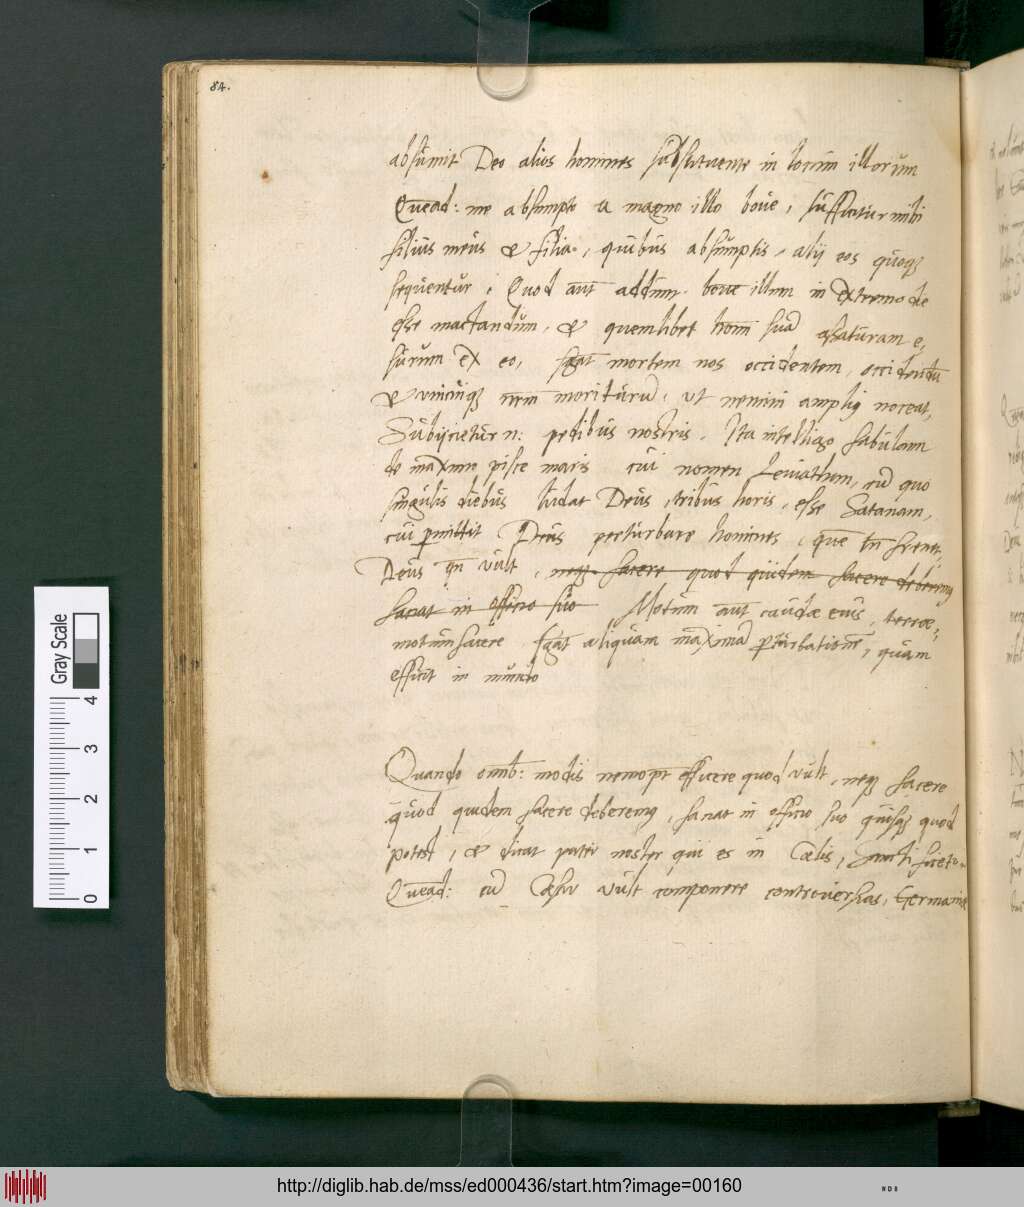 84.
absumit Deo alios homines substituente in locum illorum
Quead: me absumpto a magno illo boue, sufficitur mihi
filius meus & filia, quibus absumptis, alij eos quoq3
sequentur, Quod aut addūnt boue illum in extremo die
esse mactandum, & quemlibet hom suā assaturam e,
surum ex eo, sgāt mortem nos occidentem, occidendū
& unicūiq3 nrm moriturū, ut nemini amplig noceat,
Subijcietur n: pedibus nostris. Ita intelligo fabulam
de maximo pisce maris cui nomen Leuiathan, cū quo
singulis diebus ludat Deus, tribus horis, esse Satanam,
cui pmittit Deus perturbare homines, quē tn frenet
Deus qn uult, neq3 facere quod quidem facere deberemg
faciat in officio suo Motum aut caudæ eius, terræ
motum facere sgāt aliquam maximā pturbationē, quam
efficit in mundo
Quando omb: modis nemo pt efficere quod uult, neq3 facere
quod quidem facere deberemg, faciat in officio suo quisq3 quod
potest, & dicat pater noster qui es in Cælis, Sanctificetur
Quead: cū Cæsar uult componere controuersias, Germaniæ
Gray Scale
4
3
2
1
0
http://diglib.hab.de/mss/ed000436/start.htm?image=00160